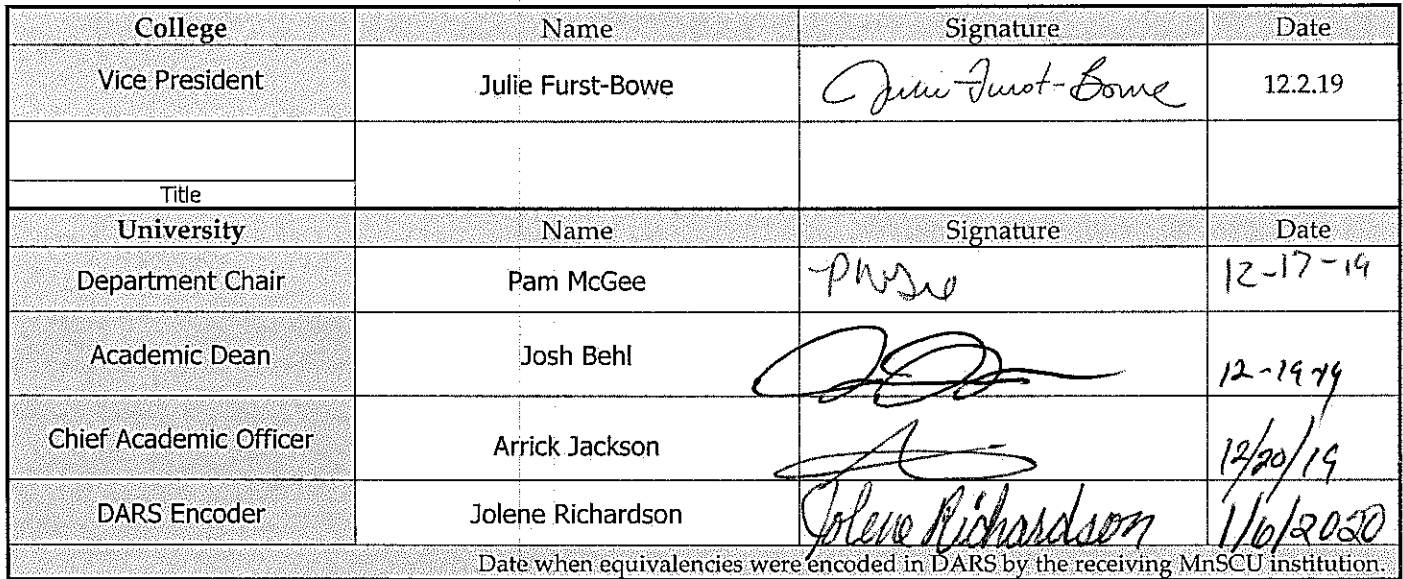 College Name Signature Date
Vice President Julie Furst-Bowe Julie Furst-Bowe 12.2.19
Title
University Name Signature Date
Department Chair Pam McGee PMcGee 12-17-19
Academic Dean Josh Behl 12-19-19
Chief Academic Officer Arrick Jackson 12/20/19
DARS Encoder Jolene Richardson Jolene Richardson 1/6/2020
Date when equivalencies were encoded in DARS by the receiving MnSCU institution.